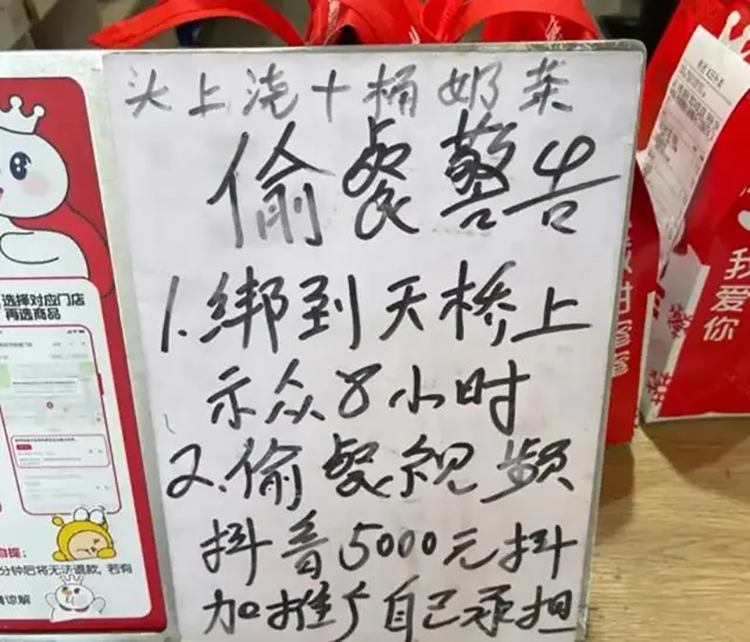 头上浇十桶奶茶
偷餐警告
1.绑到天桥上
示众8小时
2.偷餐视频
抖音5000元抖
加推广自己承担
选择对应门店
再选商品
自提：
分钟后将无法退款，若有
请谅解
我爱你